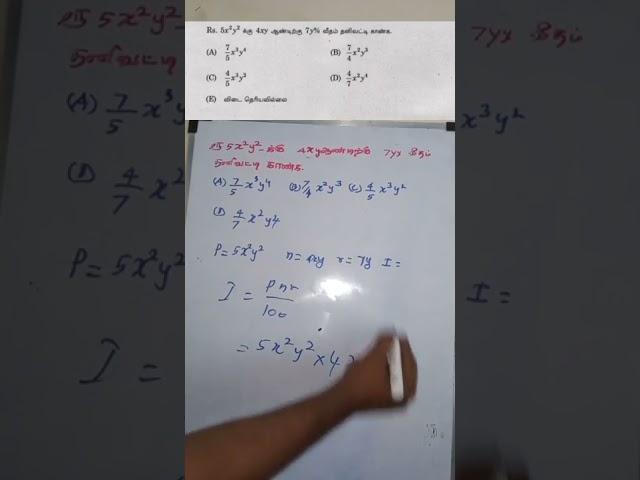 Rs. 5x²y² க்கு 4xy ஆண்டிற்கு 7y% வீதம் தனிவட்டி காண்க.
(A) 7/5 x³y⁴ (B) 7/4 x²y³
(C) 4/5 x³y³ (D) 4/7 x²y⁴
(E) விடை தெரியவில்லை
ரூ 5x²y² க்கு 4xy ஆண்டிற்கு 7y% வீதம்
தனிவட்டி காண்க.
(A) 7/5 x³y⁴ (B) 7/4 x²y³ (C) 4/5 x³y²
(D) 4/7 x²y⁴
P = 5x²y² n = 4xy r = 7y I =
I = Pnr/100
= 5x²y² × 4